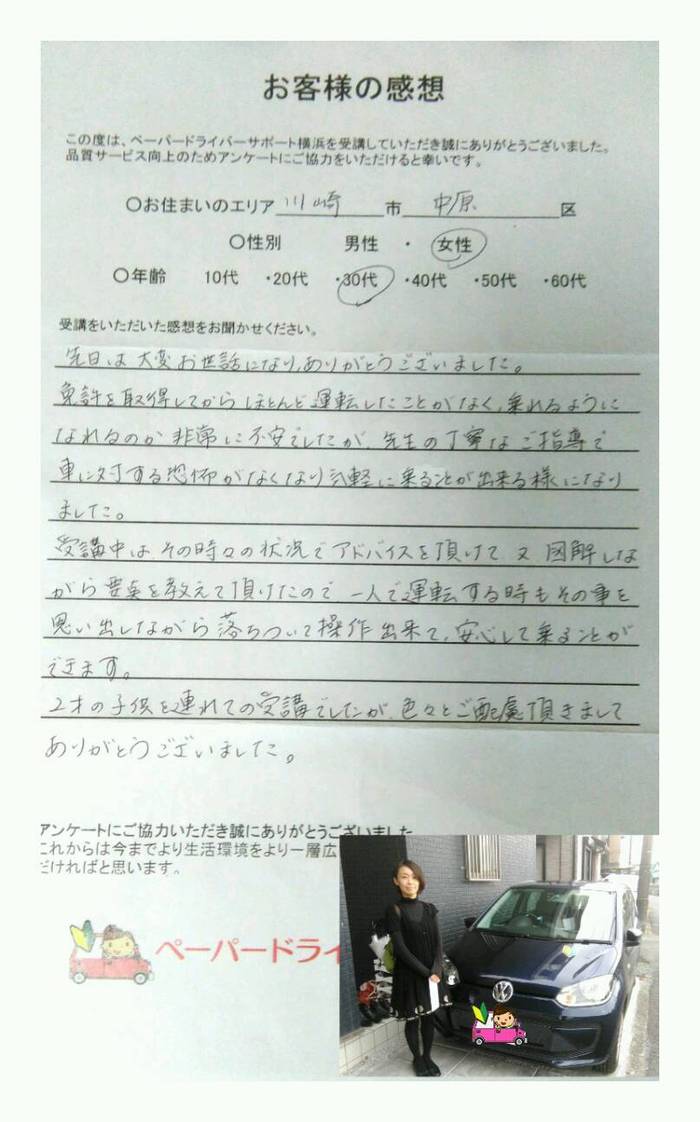 お客様の感想
この度は、ペーパードライバーサポート横浜を受講していただき誠にありがとうございました。
品質サービス向上のためアンケートにご協力をいただけると幸いです。
〇お住まいのエリア 川崎 市 中原 区
〇性別 男性 ・ 女性
〇年齢 10代 ・20代 ・30代 ・40代 ・50代 ・60代
受講をいただいた感想をお聞かせください。
先日は大変お世話になり、ありがとうございました。
免許を取得してからほとんど運転したことがなく、乗れるように
なれるのか非常に不安でしたが、先生の丁寧なご指導で
車に対する恐怖がなくなり気軽に乗ることが出来る様になり
ました。
受講中はその時々の状況でアドバイスを頂けて、又図解しな
がら要点を教えて頂けたので一人で運転する時もその事を
思い出しながら落ちついて操作出来て、安心して乗ることが
できます。
2才の子供を連れての受講でしたが、色々とご配慮頂きまして
ありがとうございました。
アンケートにご協力いただき誠にありがとうございました
これからは今までより生活環境をより一層広
だければと思います。
ペーパードライ